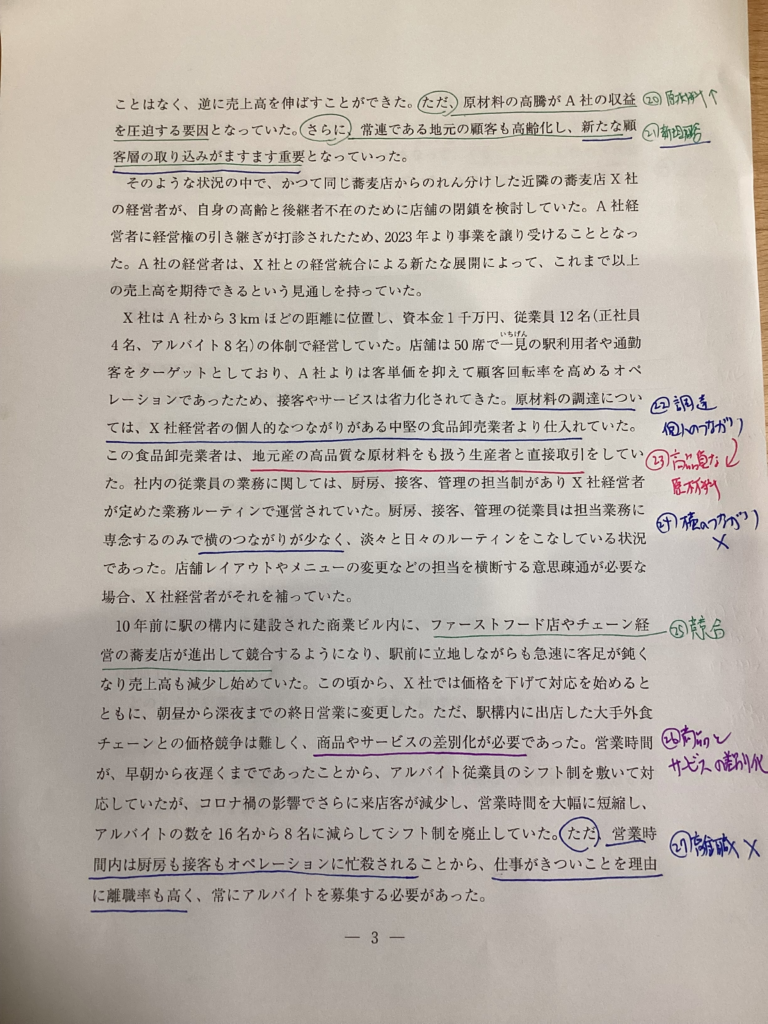 ことはなく、逆に売上高を伸ばすことができた。ただ、原材料の高騰がA社の収益
⑳原材料↑
を圧迫する要因となっていた。さらに、常連である地元の顧客も高齢化し、新たな顧
㉑
客層の取り込みがますます重要となっていった。
そのような状況の中で、かつて同じ蕎麦店からのれん分けした近隣の蕎麦店X社
の経営者が、自身の高齢と後継者不在のために店舗の閉鎖を検討していた。A社経
営者に経営権の引き継ぎが打診されたため、2023年より事業を譲り受けることとなっ
た。A社の経営者は、X社との経営統合による新たな展開によって、これまで以上
の売上高を期待できるという見通しを持っていた。
X社はA社から3kmほどの距離に位置し、資本金1千万円、従業員12名(正社員
4名、アルバイト8名)の体制で経営していた。店舗は50席で一見の駅利用者や通勤
いちげん
客をターゲットとしており、A社よりは客単価を抑えて顧客回転率を高めるオペ
レーションであったため、接客やサービスは省力化されてきた。原材料の調達につい
㉒調達
ては、X社経営者の個人的なつながりがある中堅の食品卸売業者より仕入れていた。
個人のつながり
この食品卸売業者は、地元産の高品質な原材料をも扱う生産者と直接取引をしてい
㉓高品質な
原材料
た。社内の従業員の業務に関しては、厨房、接客、管理の担当制がありX社経営者
が定めた業務ルーティンで運営されていた。厨房、接客、管理の従業員は担当業務に
㉔横のつながり
×
専念するのみで横のつながりが少なく、淡々と日々のルーティンをこなしている状況
であった。店舗レイアウトやメニューの変更などの担当を横断する意思疎通が必要な
場合、X社経営者がそれを補っていた。
10年前に駅の構内に建設された商業ビル内に、ファーストフード店やチェーン経
㉕競合
営の蕎麦店が進出して競合するようになり、駅前に立地しながらも急速に客足が鈍く
なり売上高も減少し始めていた。この頃から、X社では価格を下げて対応を始めると
ともに、朝昼から深夜までの終日営業に変更した。ただ、駅構内に出店した大手外食
チェーンとの価格競争は難しく、商品やサービスの差別化が必要であった。営業時間
㉖商品と
サービスの差別化
が、早朝から夜遅くまでであったことから、アルバイト従業員のシフト制を敷いて対
応していたが、コロナ禍の影響でさらに来店客が減少し、営業時間を大幅に短縮し、
アルバイトの数を16名から8名に減らしてシフト制を廃止していた。ただ、営業時
㉗高離職××
間内は厨房も接客もオペレーションに忙殺されることから、仕事がきついことを理由
に離職率も高く、常にアルバイトを募集する必要があった。
— 3 —